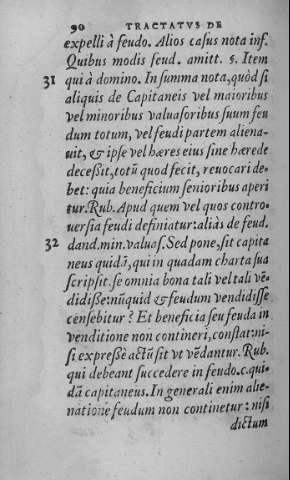 90 TRACTATVS DE
expelli à feudo. Alios casus nota inf.
Quibus modis feud. amitt. §. Item
31 qui à domino. In summa nota, quòd si
aliquis de Capitaneis vel maioribus
vel minoribus valuasoribus suum feu
dum totum, vel feudi partem aliena-
uit, & ipse vel hæres eius sine hærede
deceßit, totũ quod fecit, reuocari de-
bet: quia beneficium senioribus aperi
tur. Rub. Apud quem vel quos contro-
uersia feudi definiatur: aliàs de feud.
32 dand. min. valuas. Sed pone, sit capita
neus quidã, qui in quadam charta sua
scripsit se omnia bona tali vel tali vẽ-
didiße: nũquid & feudum vendidisse
censebitur? Et beneficia seu feuda in
venditione non contineri, constat: ni-
si expreßè actũ sit vt vẽdantur. Rub.
qui debeant succedere in feudo. c. qui-
dã capitaneus. In generali enim alie-
natione feudum non continetur: nisi
dictum